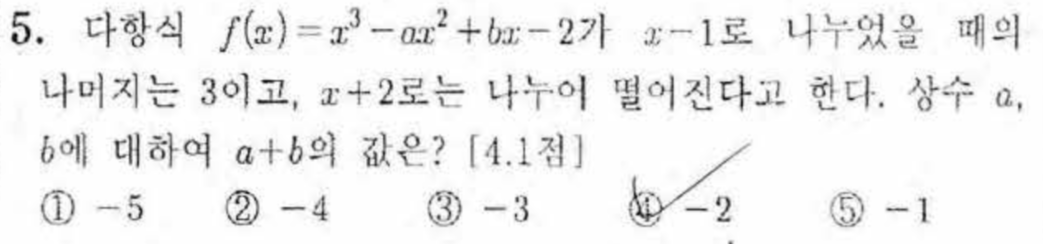 5. 다항식 f(x)=x³-ax²+bx-2가 x-1로 나누었을 때의
나머지는 3이고, x+2로는 나누어 떨어진다고 한다. 상수 a,
b에 대하여 a+b의 값은? [4.1점]
① -5 ② -4 ③ -3 ④ -2 ⑤ -1